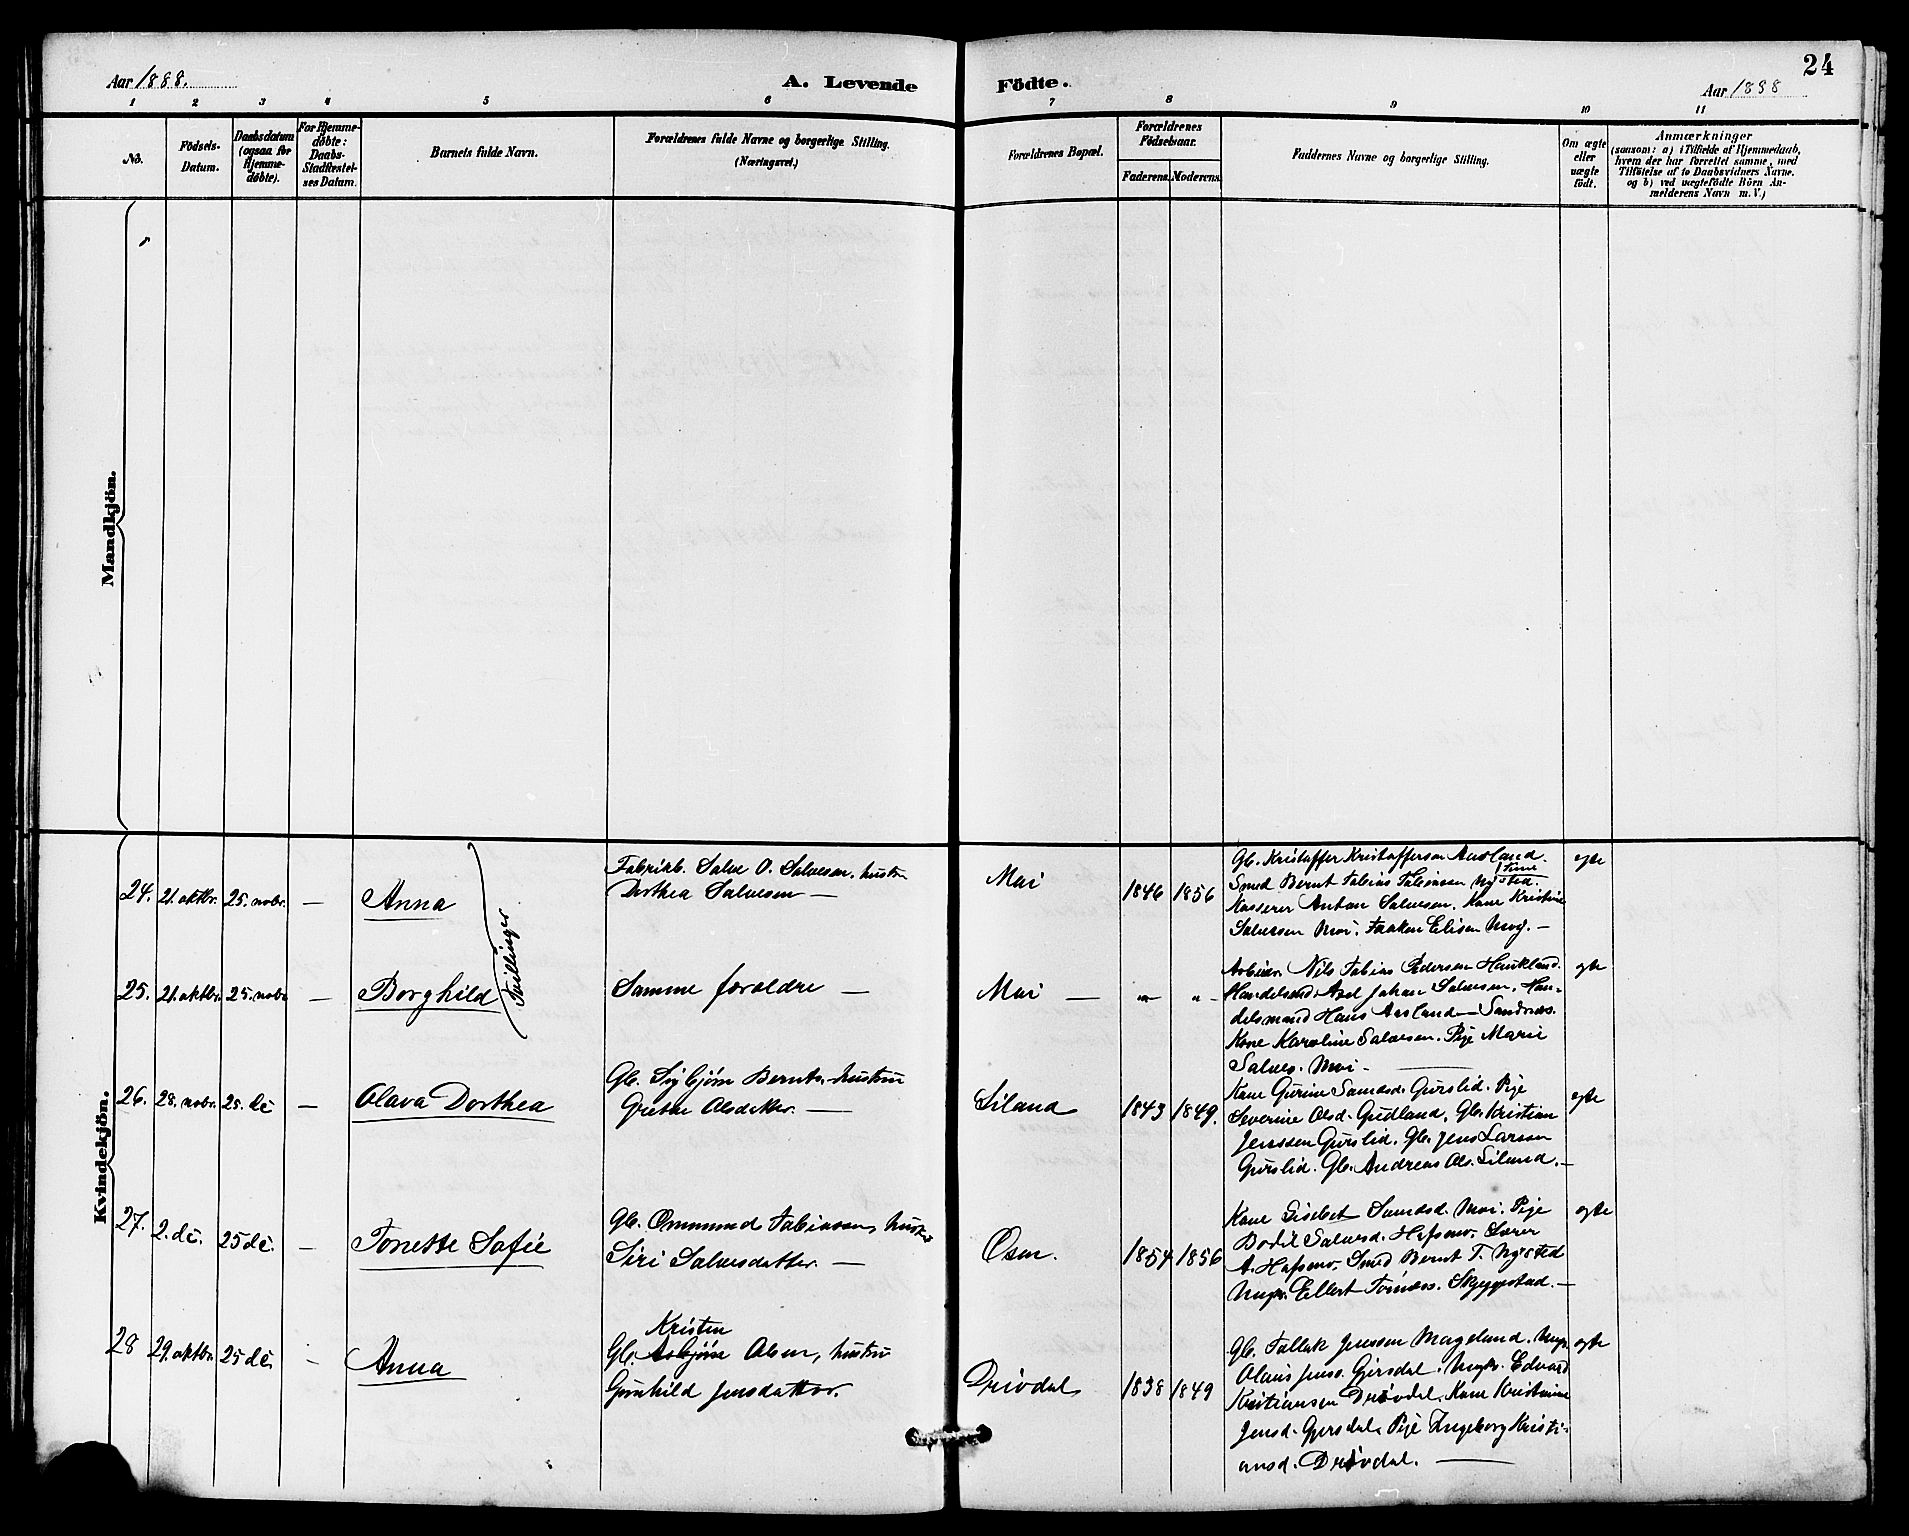 24
Aar 1888.
A. Levende Födte.
Aar 1888
1 2 3 4 5 6 7 8 9 10 11
No.
Födsels-
Datum.
Daabsdatum
(ogsaa for
Hjemme-
døbte).
For Hjemme-
døbte:
Daabs-
Stadfestel-
ses Datum.
Barnets fulde Navn.
Forældrenes fulde Navne og borgerlige Stilling.
(Næringsvei.)
Forældrenes Bopæl.
Forældrenes
Födselsaar.
Faderens. Moderens.
Faddernes Navne og borgerlige Stilling.
Om ægte
eller
uægte
født.
Anmærkninger
(saasom: a) i Tilfælde af Hjemmedaab,
hvem der har forrettet samme, med
Tilföielse af to Daabsvidners Navne.
og b) ved uægtefödte Börn An-
melderens Navn m. V.)
Mandkjön.
Kvindekjön.
24. 21. oktbr. 25. novbr. — Anna
Tvillinger
Fabrikb. Salve O. Salvesen, hustru
Dorthea Salvesen —
Moi 1846 1856
Gb. Kristoffer Kristoffersen Aasland.
Smed Bernt Tobias Tobiassen Nysted.
Kasserer Anton Salvesen. Kone Kristine
Salvesen Moi. Frøken Elisen Moy. —
egte
25. 21. oktbr. 25. novbr — Borghild
Samme forældre —
Moi — " — " —
Arbeider Nils Tobias Pedersen Haukland.
Handelsmd. Axel Johan Salvesen. Han-
delsmand Hans Aasland — Sandnæs.
Kone Karoline Salvesen. Pige Marie
Salves. Moi —
egte
26. 28. novbr. 25. dc — Olava Dorthea
Gb. Sigbjørn Bernts. hustru
Grethe Olsdatter. —
Liland 1843 1849.
Kone Gurine Samdsd. Gurslid. Pige
Severine Olsd. Gudland. Gb. Kristian
Jenssen Gurslid. Gb. Jens Larsen
Gurslid. Gb. Andreas Ols. Liland. —
egte
27. 2. dc. 25 dc. — Tonette Sofie
Gb. Ommund Tobiassen, hustru
Siri Salvesdatter. —
Osen. 1854 1856
Kone Lisebet Samdsd. Moi. Pige
Bodil Salvesd. Hafsmo. Lærer
A. Hafsmo. Smed Bernt T. Nysted
Ungk. Ellert Tønnes. Skeggestad. —
egte
28 29. oktbr. 25 dc. — Anna
Kristen
Gb. Asbjørn Olsen, hustru
Gunhild Jensdatter.
Drivdal 1838 1849
Gb. Tallak Jenssen Mageland. Ungk.
Olaus Jenss. Gjersdal. Ungk. Edvard
Kristiansen Drivdal. Kone Kristine
Jensd. Gjersdal. Pige Ingeborg Kristi-
ansd. Drivdal. —
egte